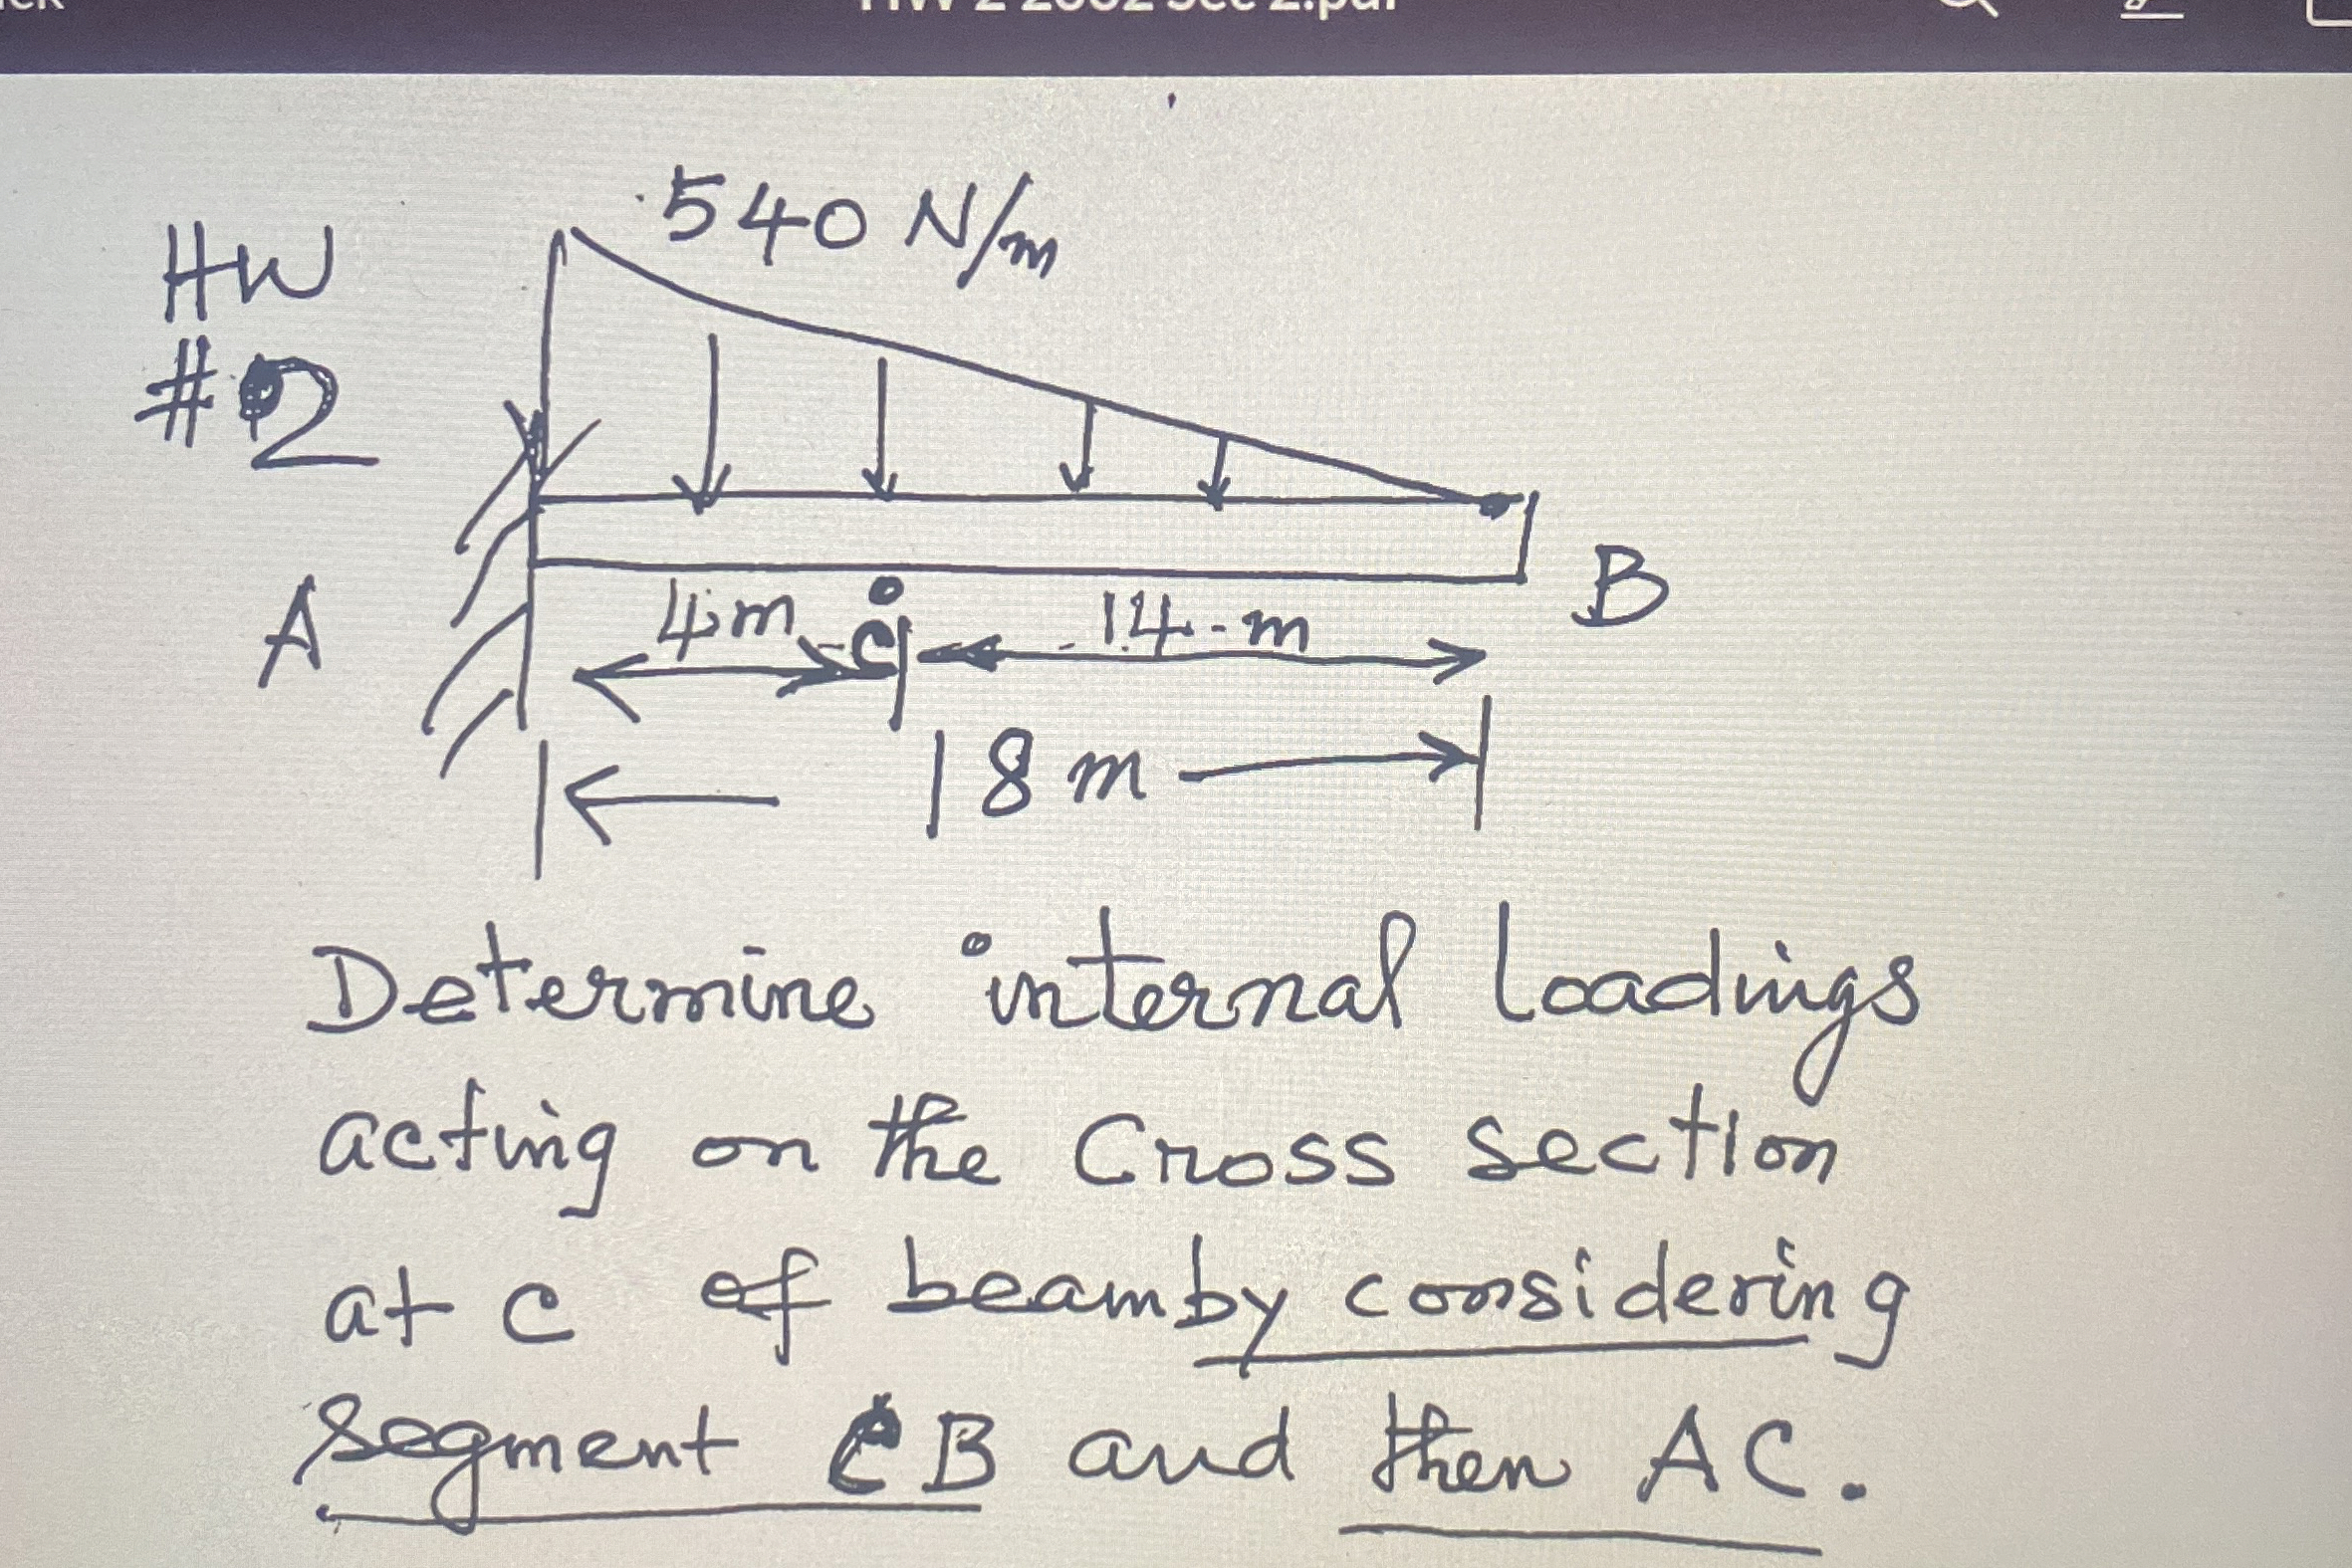 HW 2 2002 Sec 2.pdf
540 N/m
HW
#2
A
4m
C
14-m
B
18m
Determine internal loadings
acting on the Cross section
at c of beam by considering
segment CB and then AC.